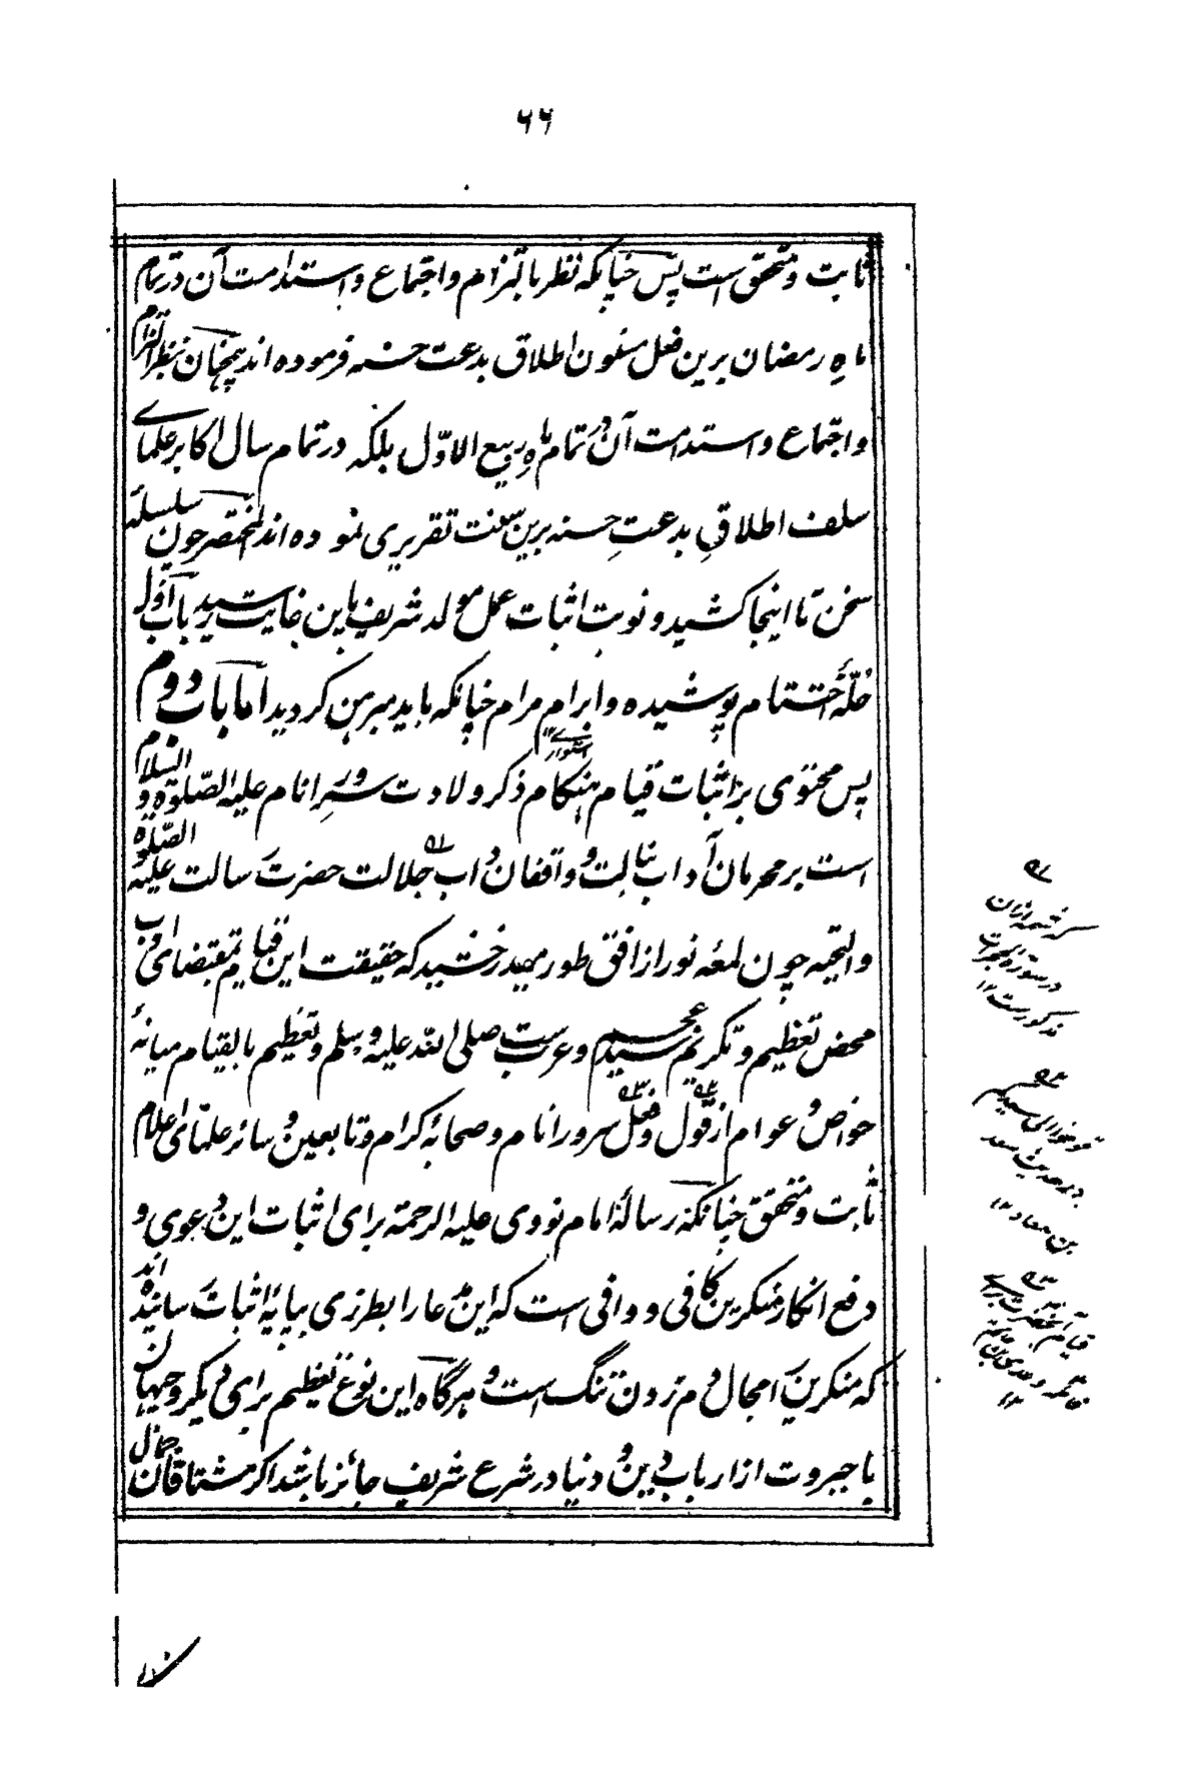 ۶۶
ثابت و متحقق است پس چنانکه نظر بالتزام و اجتماع و استدامت آن در تمام
ماہِ رمضان برین فعل مسنون اطلاق بدعت حسنہ فرموده اند همچنان بنظر التزام
و اجتماع و استدامت آن در تمام ماہِ ربیع الاوّل بلکہ در تمام سال اکابر علمای
سلف اطلاقِ بدعتِ حسنہ برین سنت تقریری نموده اند المختصر چون سلسلۂ
سخن تا اینجا کشید و نوبت اثبات عمل مولد شریف باین غایت رسید باب اوّل
حُلّۂ اختتام پوشیده و ابرامِ مرام چنانکہ باید مبرہن گردید اما باب دوم
پس محتوی بر اثبات قیام ہنگام ذکر ولادت سرورِ انام علیہ الصّلوٰۃ و السّلام
است بر محرمان آداب نبالت و واقفان داب جلالت حضرت رسالت علیہ الصّلوٰۃ
و التحیہ چون لمعۂ نور از افق طور میدرخشید کہ حقیقت این قیام بمقتضای ادب
محض تعظیم و تکریم سید عجم و عرب ست صلی اللہ علیہ و سلم و تعظیم بالقیام میانۂ
خواص و عوام از قول و فعل سرور انام و صحابۂ کرام و تابعین و سائر علمای اعلام
ثابت و متحقق چنانکہ رسالۂ امام نووی علیہ الرحمۃ برای اثبات این دعوی و
دفع انکار منکرین کافی و وافی است کہ این مدعا را بطرزی بپایۂ اثبات رسانیده اند
کہ منکرین را مجال دم زدن تنگ است و ہرگاہ این نوع تعظیم برای دیگر وجیہان
با جبروت از ارباب دین و دنیا در شرع شریف جائز باشد اگر مشتاقان جمال
در سورۂ
مذکورست ۱۲
قوموا الی سیدکم
سعد
بن معاذ ۱۲
قیام آنحضرت برای
فاطمہ و
۱۲